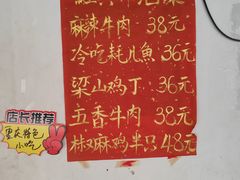 麻辣牛肉 38元
冷吃耗儿魚 36元
梁山鸡丁 36元
五香牛肉 38元
椒麻鸡半只48元
店长推荐
重庆特色
小吃